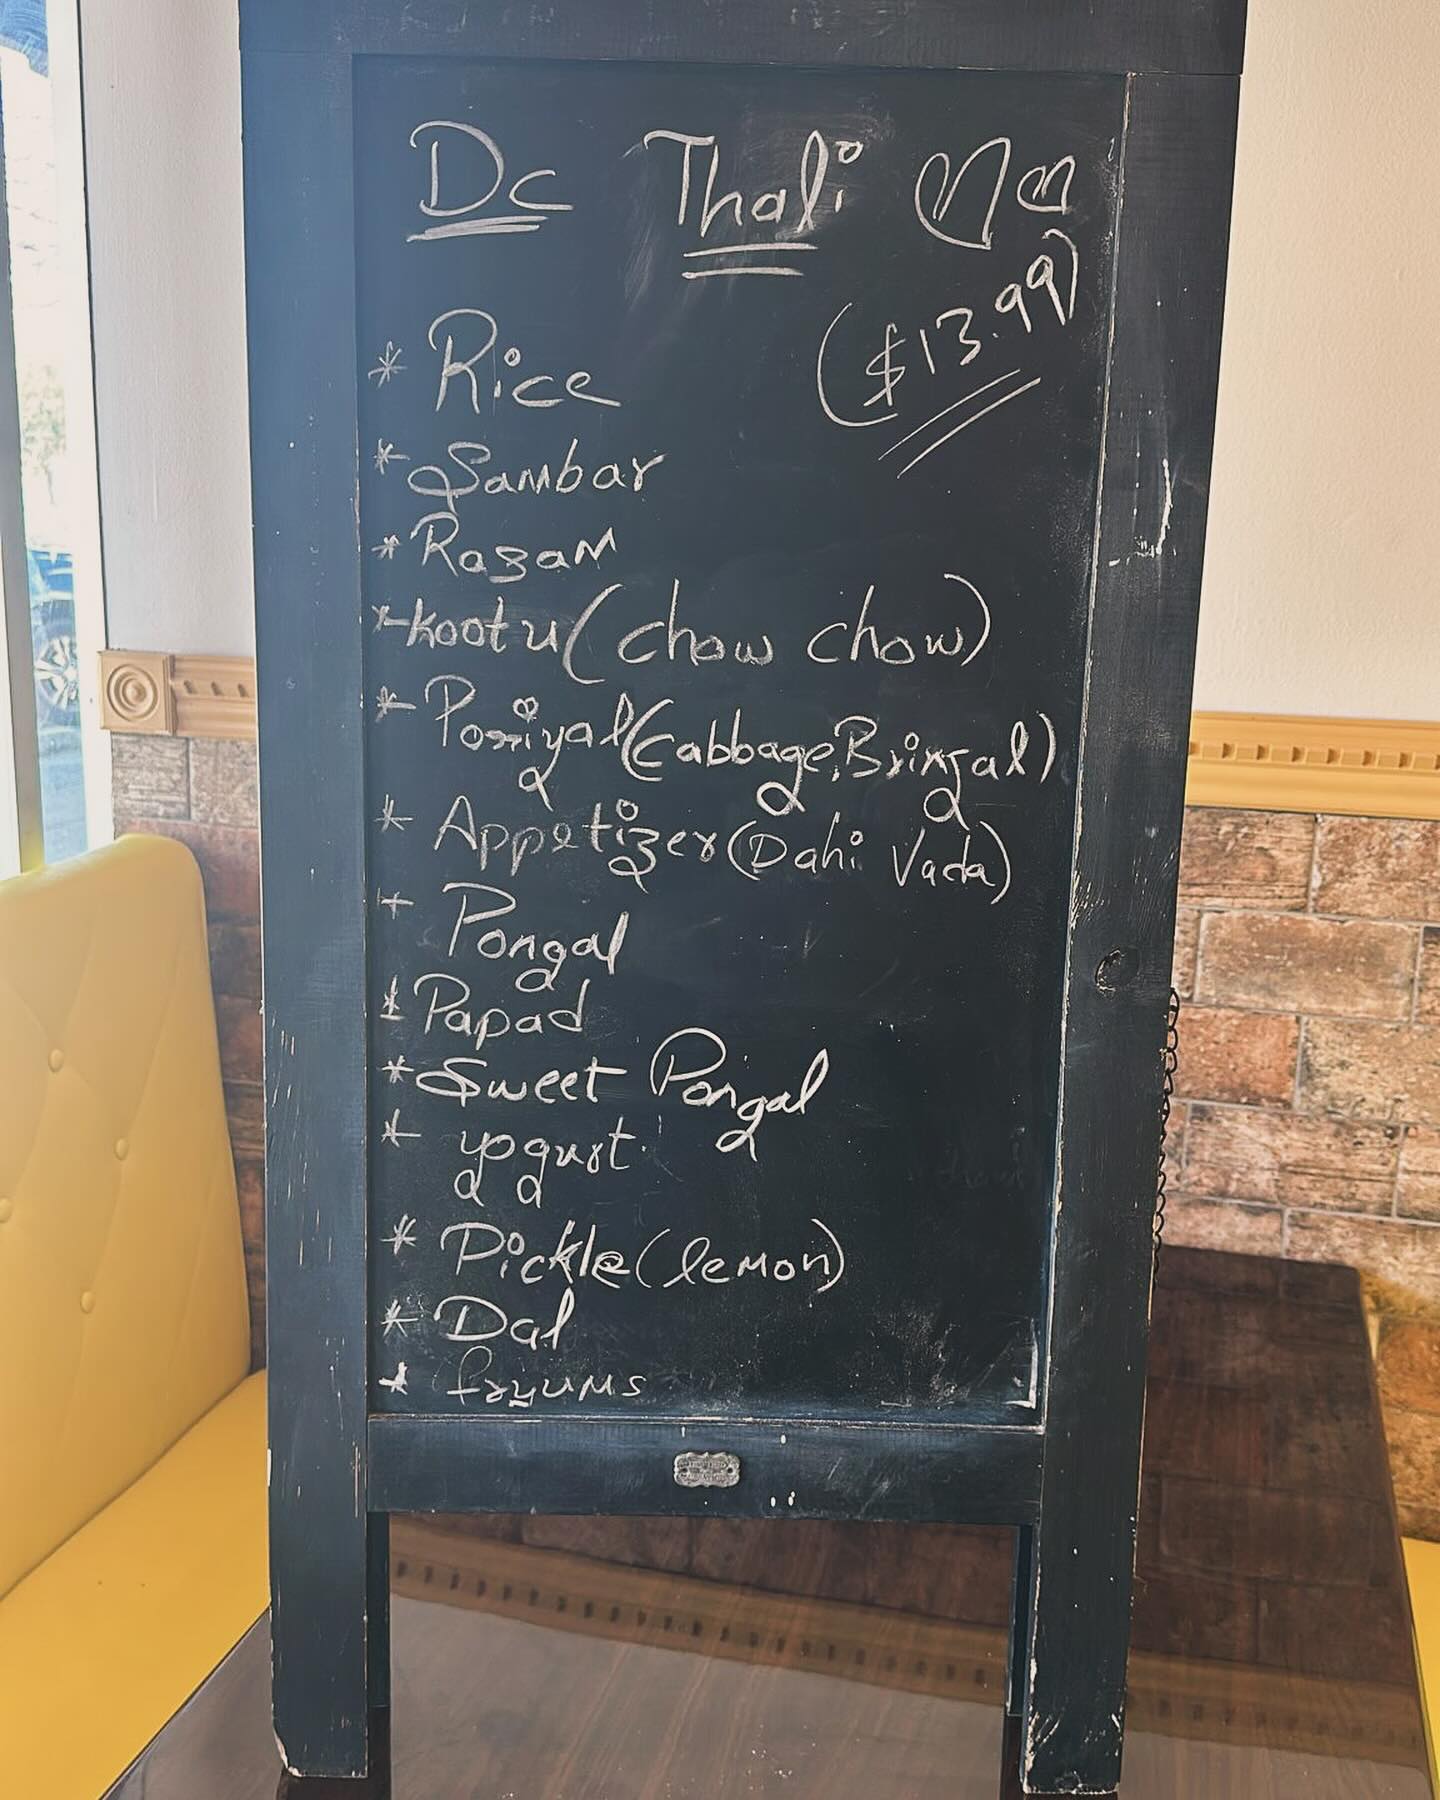 Dc Thali
($13.99)
* Rice
* Sambar
* Rasam
* kootu (chow chow)
* Poriyal (Cabbage, Brinjal)
* Appetizer (Dahi Vada)
* Pongal
* Papad
* Sweet Pongal
* yogurt
* Pickle (lemon)
* Dal
* fryums